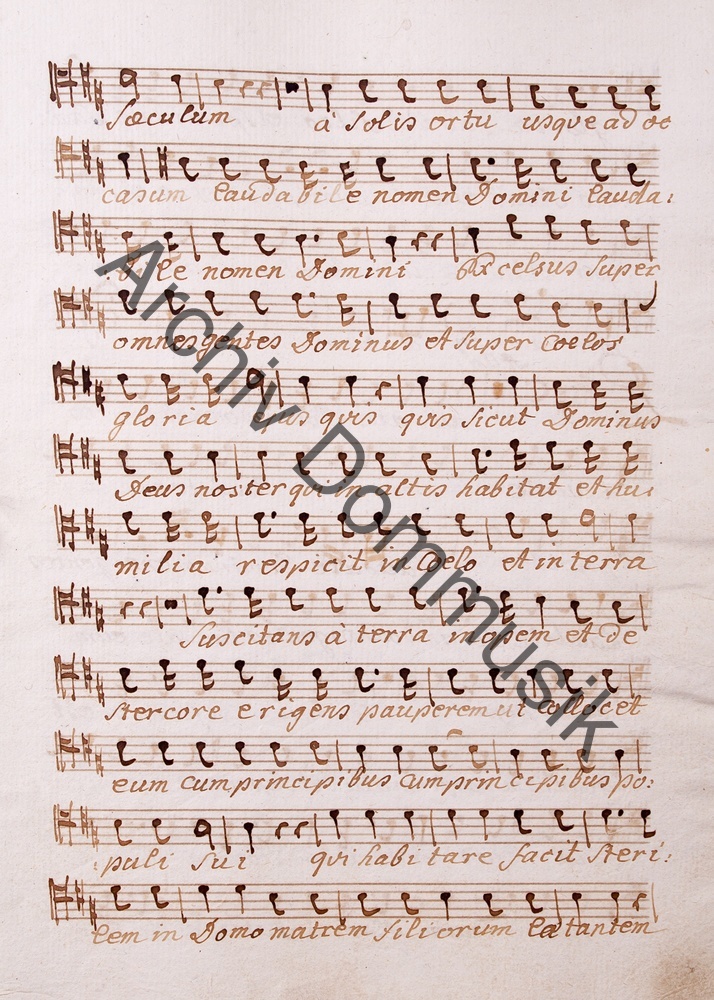 sæculum à solis ortu usque ad oc
casum laudabile nomen Domini lauda:
bile nomen Domini Excelsus super
omnes gentes Dominus et super Coelos
gloria ejus quis quis sicut Dominus
Deus noster qui in altis habitat et hu:
milia respicit in Coelo et in terra
Suscitans à terra inopem et de
stercore erigens pauperem ut collocet
eum cum principibus cum principibus po:
puli sui qui habitare facit steri:
lem in Domo matrem filiorum lætantem
Archiv Dommusik